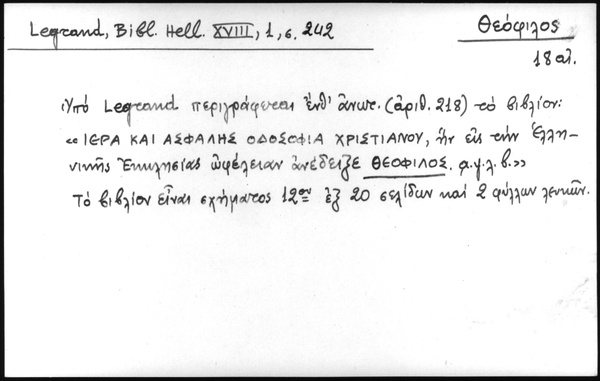 Legrand, Bibl. Hell. XVIII, 1, σ. 242
Θεόφιλος
18 αι.
Ὑπό Legrand περιγράφεται ἔνθ' ἄνωτ. (ἀριθ. 218) τό βιβλίον:
« ΙΕΡΑ ΚΑΙ ΑΣΦΑΛΗΣ ΟΔΟΣΟΦΙΑ ΧΡΙΣΤΙΑΝΟΥ, ἥν εἰς τήν Ἑλλη-
νικῆς Ἐκκλησίας ὠφέλειαν ἀνέδειξε ΘΕΟΦΙΛΟΣ. α.ψ.λ.β.»
Τό βιβλίον εἶναι σχήματος 12ον ἐξ 20 σελίδων καί 2 φύλλων λευκῶν.